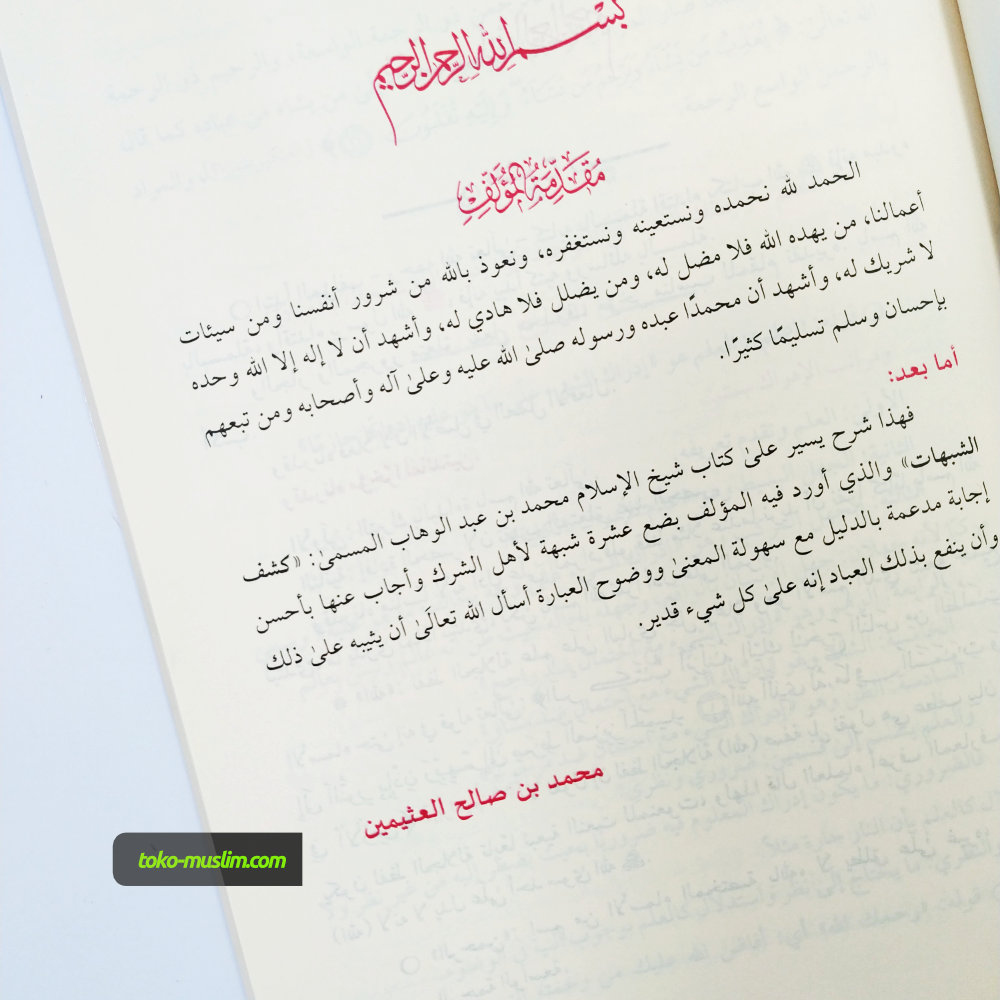 بسم الله الرحمن الرحيم
مُقَدِّمَةُ المُؤَلِّفِ
الحمد لله نحمده ونستعينه ونستغفره، ونعوذ بالله من شرور أنفسنا ومن سيئات
أعمالنا، من يهده الله فلا مضل له، ومن يضلل فلا هادي له، وأشهد أن لا إله إلا الله وحده
لا شريك له، وأشهد أن محمدًا عبده ورسوله صلىٰ الله عليه وعلىٰ آله وأصحابه ومن تبعهم
بإحسان وسلم تسليمًا كثيرًا.
أما بعد:
فهذا شرح يسير علىٰ كتاب شيخ الإسلام محمد بن عبد الوهاب المسمىٰ: «كشف
الشبهات» والذي أورد فيه المؤلف بضع عشرة شبهة لأهل الشرك وأجاب عنها بأحسن
إجابة مدعمة بالدليل مع سهولة المعنىٰ ووضوح العبارة أسأل الله تعالَىٰ أن يثيبه علىٰ ذلك
وأن ينفع بذلك العباد إنه علىٰ كل شيء قدير.
محمد بن صالح العثيمين
toko-muslim.com